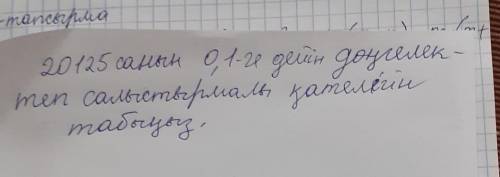 -тапсырма
20125 санын 0,1-ге дейін дөңгелек-
теп салыстырмалы қателігін
табыңыз.